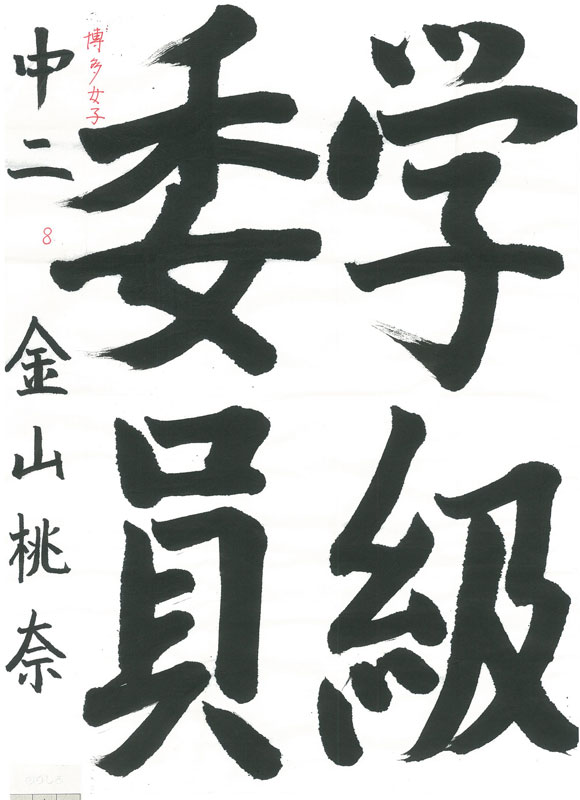 学級
委員
博多女子
中二 8 金山桃奈